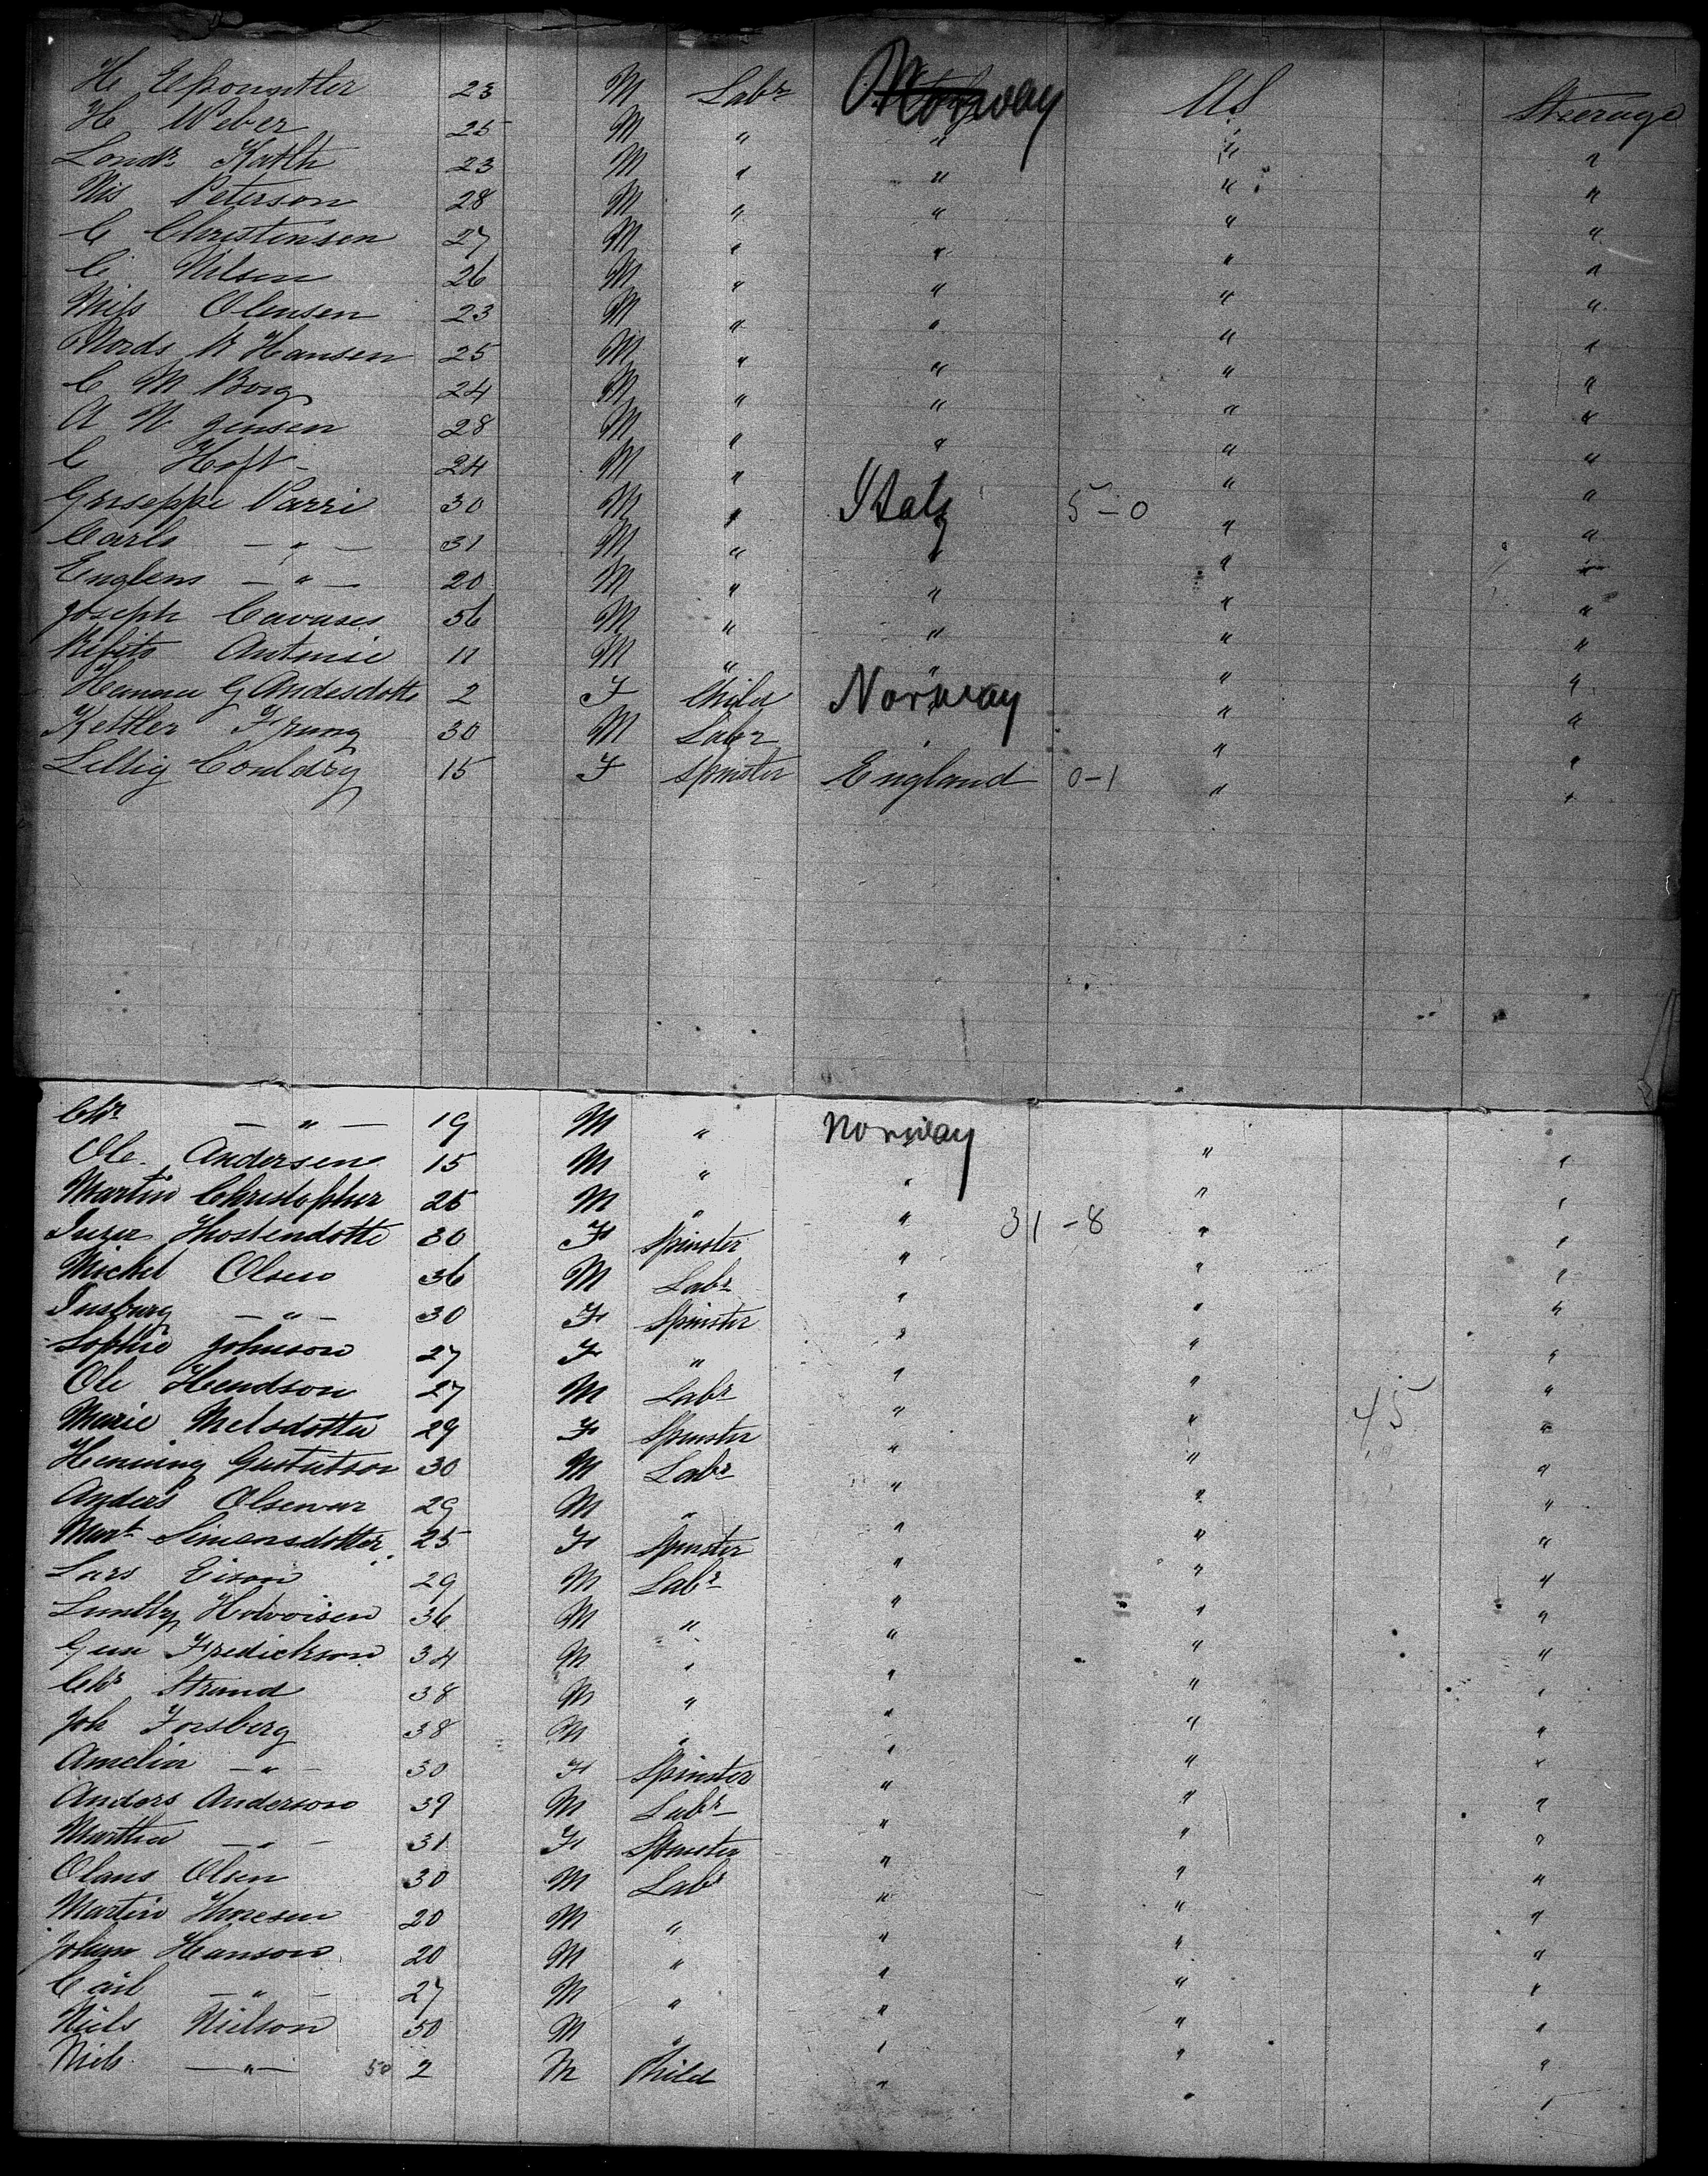 H 23 M Labr Norway US Steerage
H Weber 25 M " " " "
Londr Kath 23 M " " " "
Nis Peterson 28 M " " " "
C Christensen 27 M " " " "
C Nilsen 26 M " " " "
Nils Olensen 23 M " " " "
Mads K Hansen 25 M " " " "
C M Borg 24 M " " " "
A N Jensen 28 M " " " "
C Hoft 24 M " " " "
Giuseppe Parri 30 M " Italy 5-0 " "
Carlo — " — 31 M " " " "
— " — 20 M " " " "
Joseph Cavases 56 M " " " "
Antonie 11 M " " " "
G Andesdotte 2 F Child Norway " "
Kettler 30 M Labr " " "
Couldry 15 F Spinster England 0-1 " "
Chr — " — 19 M " Norway " "
Ole Andersen 15 M " " " "
Martin Christopher 25 M " " 31-8 " "
Thostendotte 30 F Spinster " " "
Michel Olsen 36 M Labr " " "
— " — 30 F Spinster " " "
Sophie Johnson 27 F " " " "
Ole Hendson 27 M Labr " " 45 "
Marie Melsdotter 29 F Spinster " " "
Henning Gustutson 30 M Labr " " "
Anders 29 M " " " "
Mart Simensdotter 25 F Spinster " " "
Lars Eison 29 M Labr " " "
36 M " " " "
Fredickson 34 M " " " "
Chr Strand 38 M " " " "
Joh Forsberg 38 M " " " "
Amelia — " — 30 F Spinster " " "
Anders Anderson 39 M Labr " " "
Martha — " — 31 F Spinster " " "
Olaus Olsen 30 M Labr " " "
Martin 20 M " " " "
Johan Hanson 20 M " " " "
Carl — " — 27 M " " " "
Niels Nielson 50 M " " " "
Niels — " — 50 2 M Child " " "